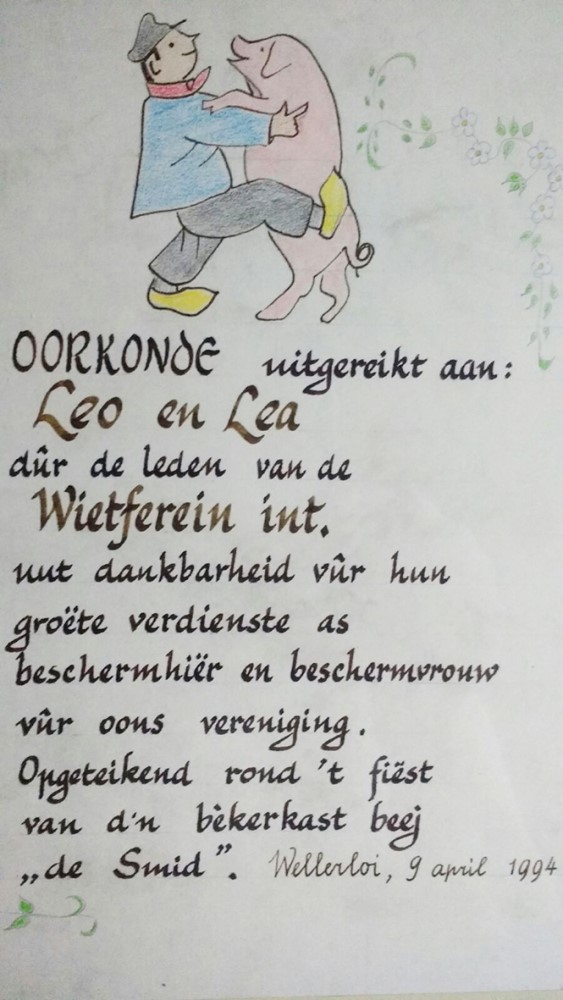 OORKONDE uitgereikt aan:
Leo en Lea
dûr de leden van de
Wietferein int.
uut dankbarheid vûr hun
groëte verdienste as
beschermhiër en beschermvrouw
vûr oons vereniging.
Opgeteikend rond 't fiëst
van d'n bèkerkast beej
„de Smid”. Wellerloi, 9 april 1994